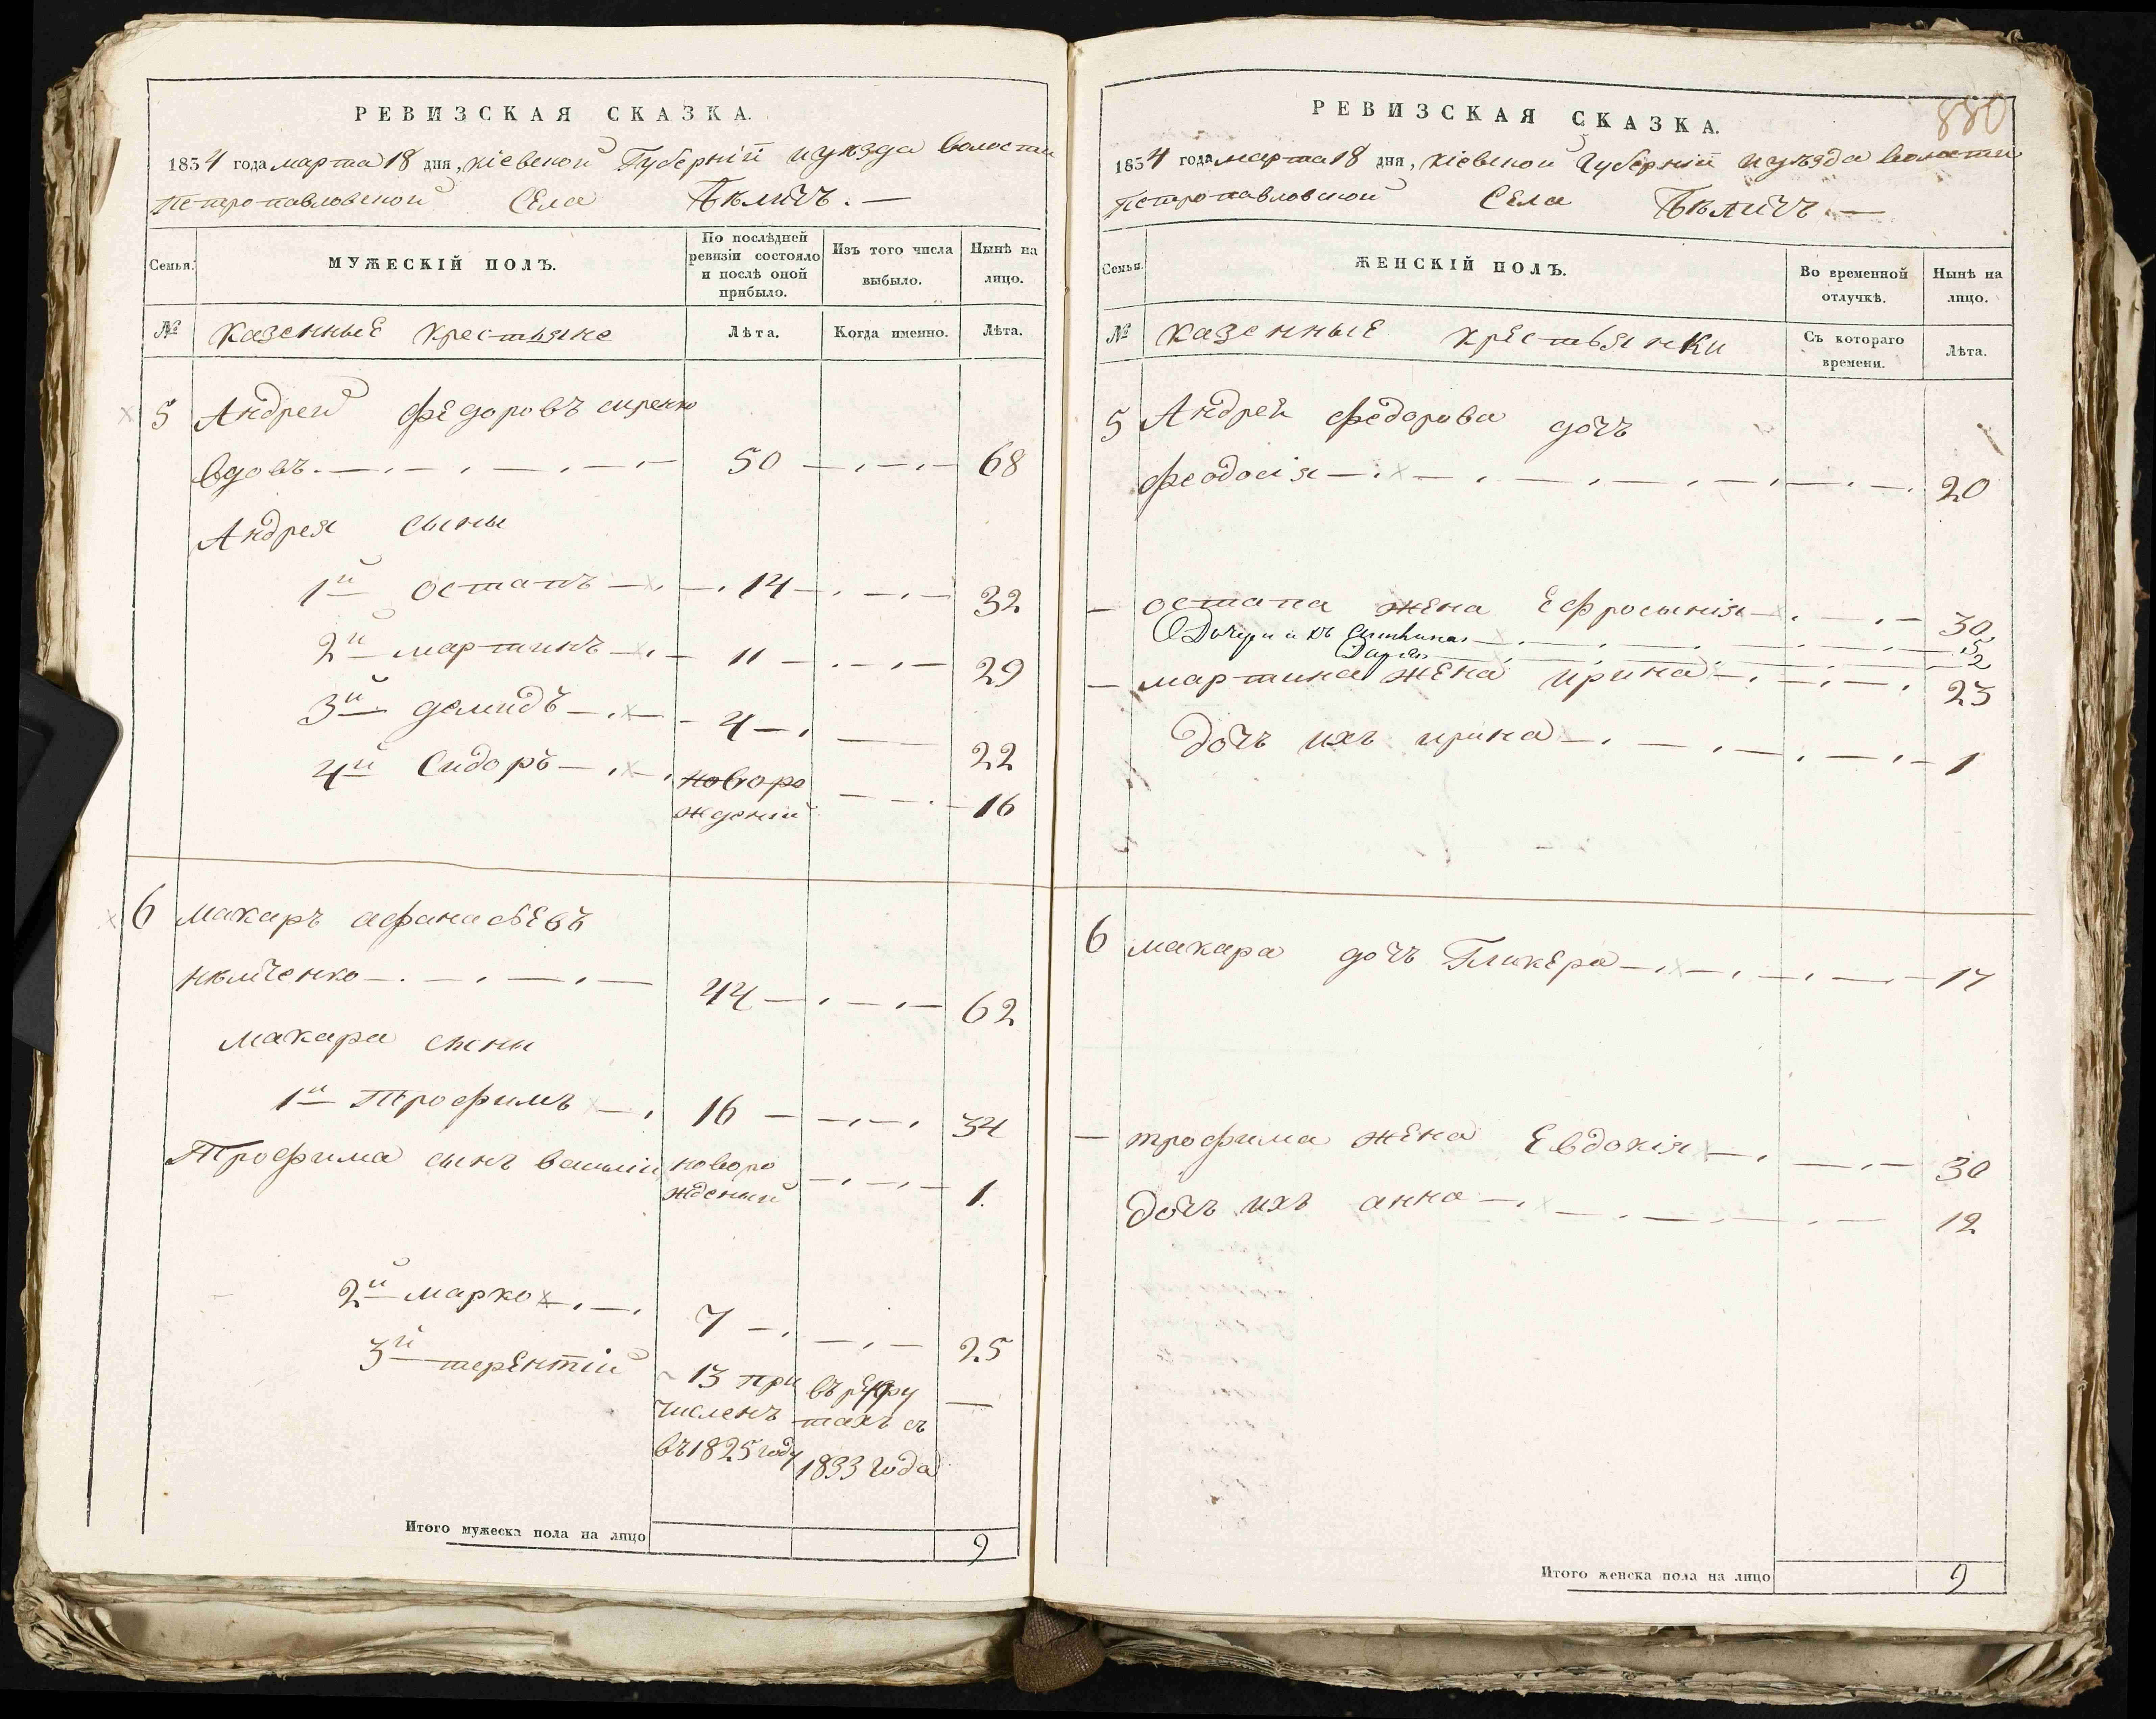 РЕВИЗСКАЯ СКАЗКА.
1834 года марта 18 дня, кіевской Губерній и уѣзда волости
петропавловской Села Бѣличъ. —
Семьи.
МУЖЕСКІЙ ПОЛЪ.
По послѣдней ревизіи состояло и послѣ оной прибыло.
Изъ того числа выбыло.
Нынѣ на лицо.
№ казенные крестьяне Лѣта. Когда именно. Лѣта.
5 Андрей федоровъ
вдовъ. 50 68
Андрея сыны
1й остапъ 14 32
2й мартинъ 11 29
3й демидъ 4 22
4й Сидоръ новоро 16
жденій
6 макаръ афанасьевъ
нѣмченко 44 62
макара сыны
1й Трофимъ 16 34
Трофима сынъ василій новоро
жденый 1.
2й марко 7 25
3й терентій 13 при въ рекру —
численъ тахъ съ
въ 1825 году 1833 года
Итого мужеска пола на лицо 9
880
РЕВИЗСКАЯ СКАЗКА.
1834 года марта 18 дня, кіевской Губерній и уѣзда волости
петропавловской Села Бѣличъ. —
Семьи.
ЖЕНСКІЙ ПОЛЪ.
Во временной отлучкѣ.
Нынѣ на лицо.
№ казенные крестьянки Съ котораго времени. Лѣта.
5 Андрея федорова дочъ
феодосія 20
— остапа жена Ефросынія 30
Дочери ихъ 5
Дарья 2
— мартина жена ирина 23
дочъ ихъ ирина 1
6 макара дочъ Гликера 17
— трофима жена Евдокія 30
дочъ ихъ анна 12
Итого женска пола на лицо 9